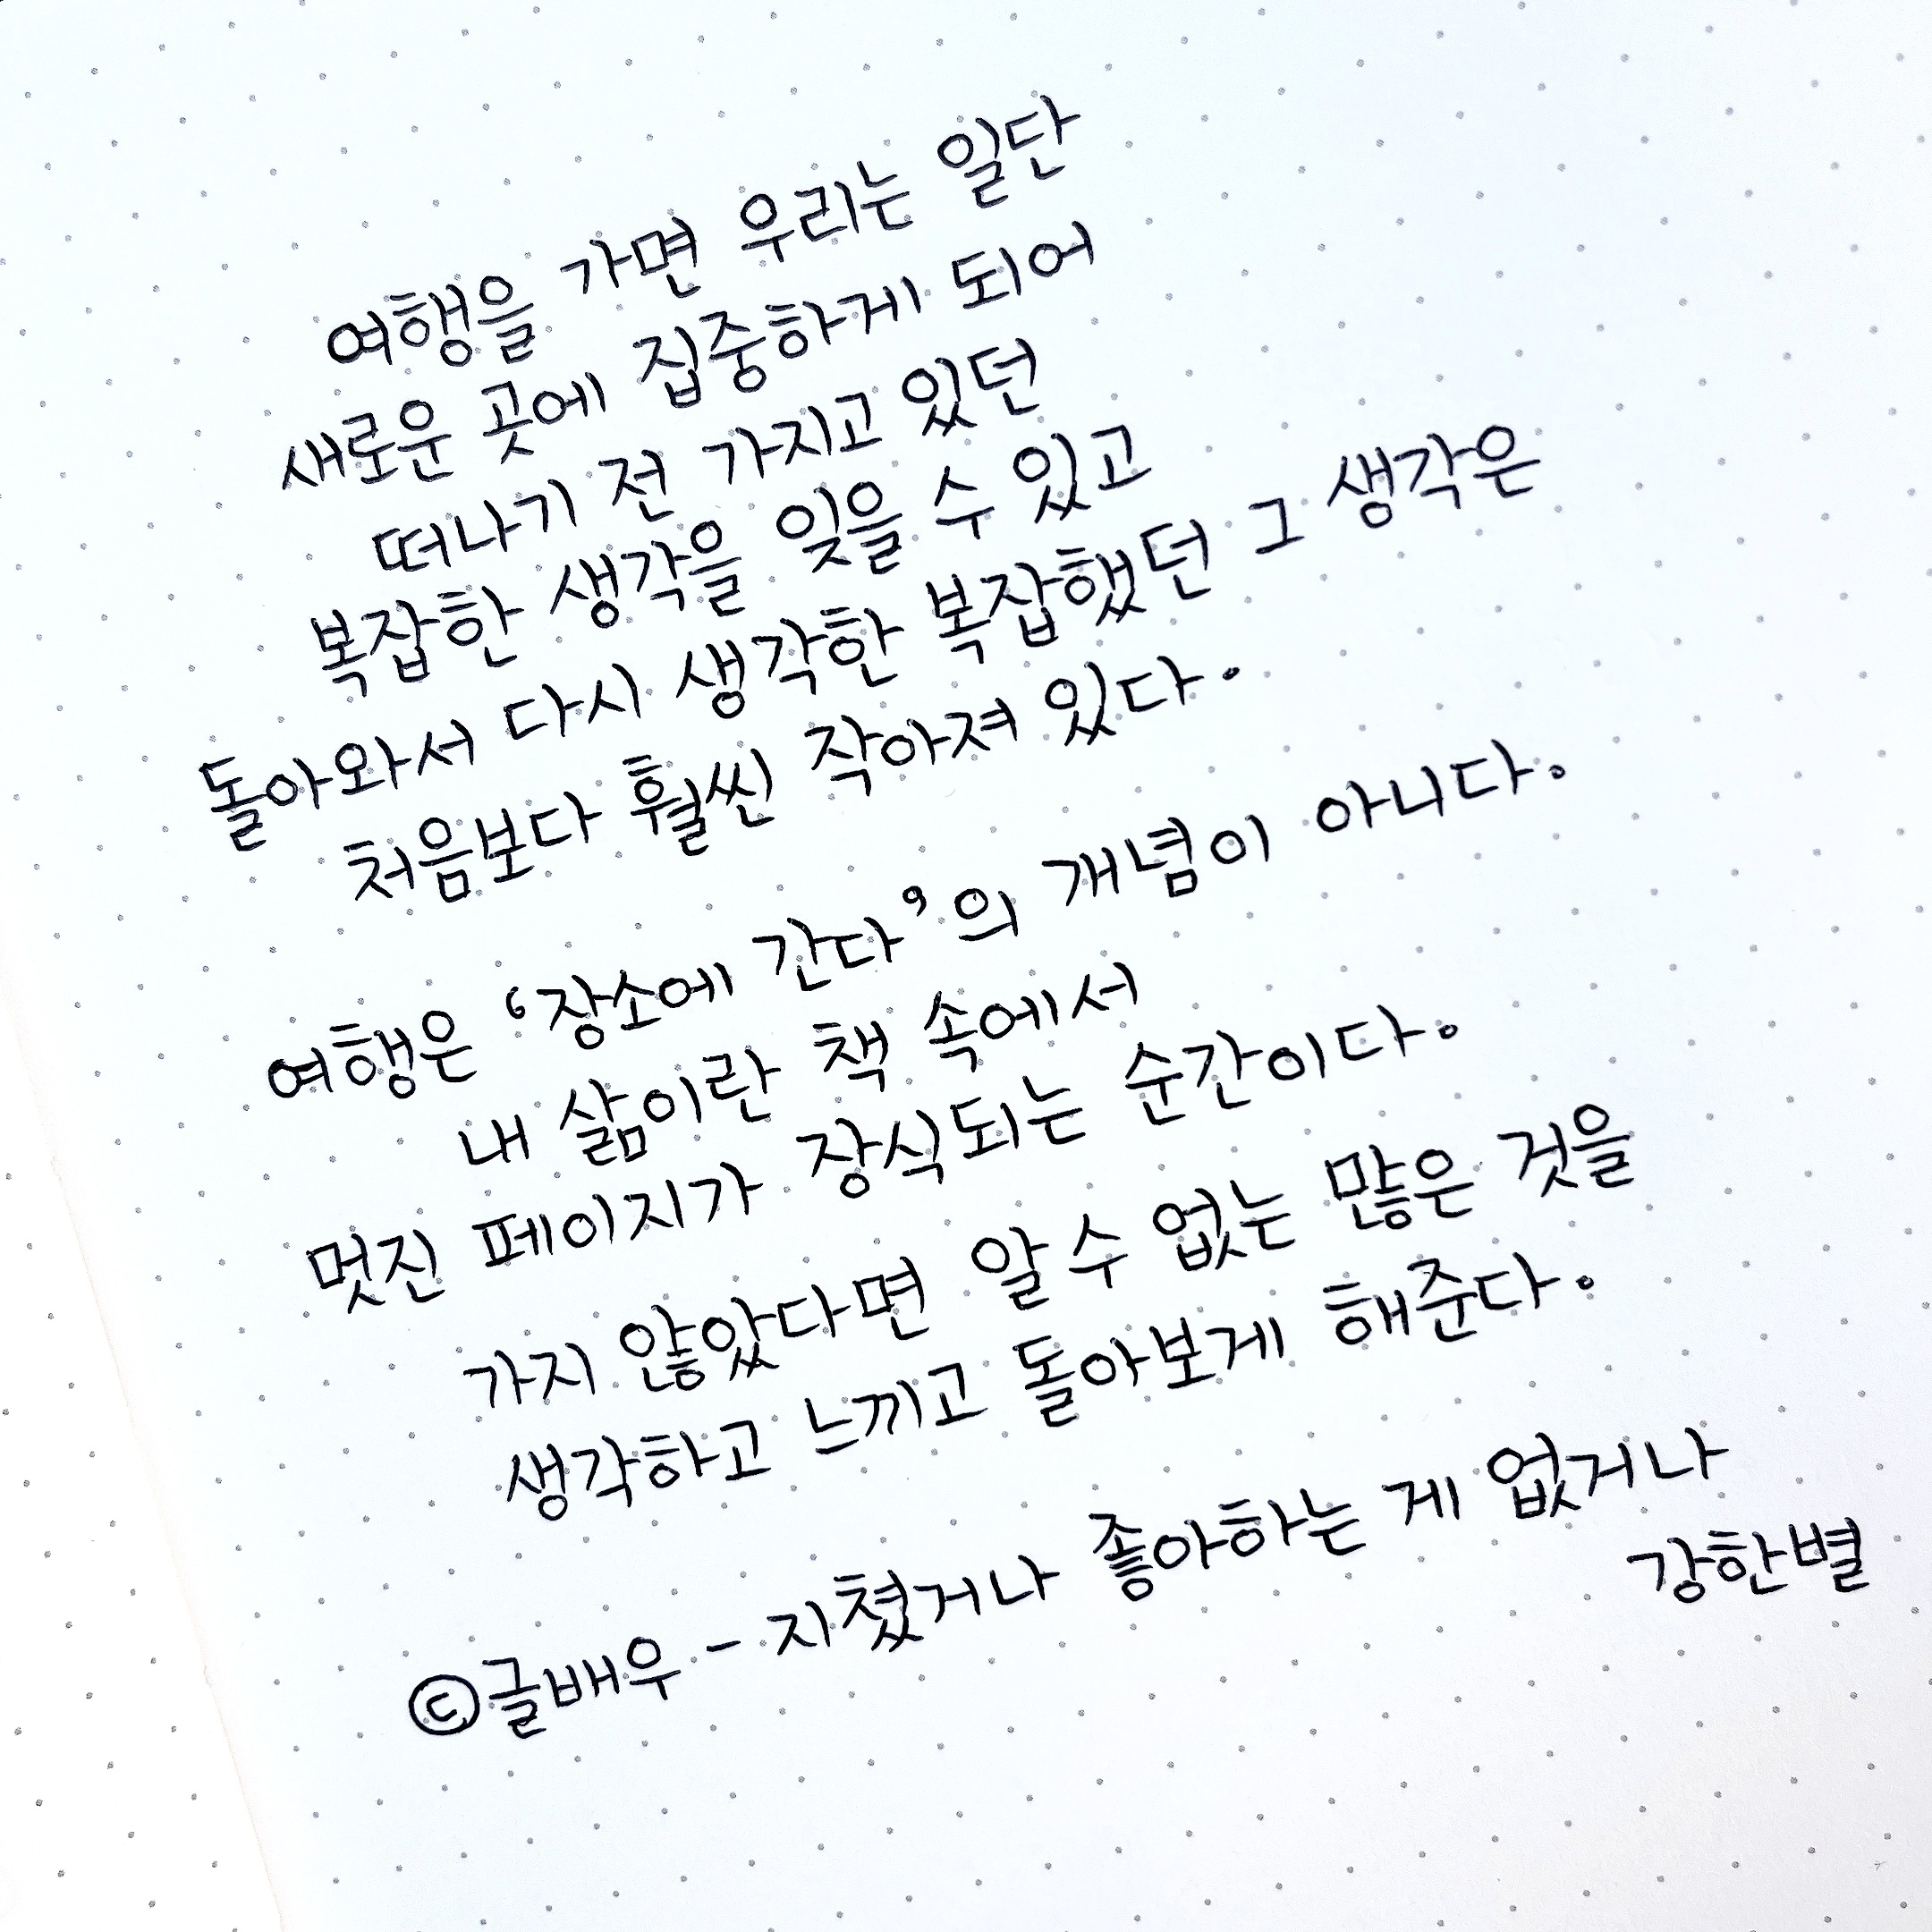 여행을 가면 우리는 일단
새로운 곳에 집중하게 되어
떠나기 전 가지고 있던
복잡한 생각을 잊을 수 있고
돌아와서 다시 생각한 복잡했던 그 생각은
처음보다 훨씬 작아져 있다.
여행은 '장소에 간다'의 개념이 아니다.
내 삶이란 책 속에서
멋진 페이지가 장식되는 순간이다.
가지 않았다면 알 수 없는 많은 것을
생각하고 느끼고 돌아보게 해준다.
©글배우 - 지쳤거나 좋아하는 게 없거나
강한별